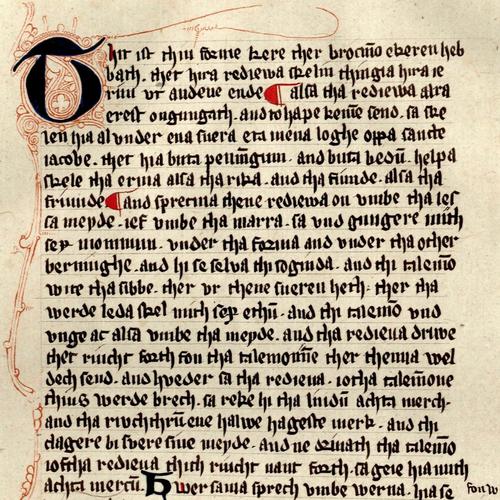 Thit ist thiu forme kere ther brocmo ekeren heb
bath. thet hira rediewa skelin thingia hira ie
rim vt and eue ende alsa tha rediewa alra
erest ongungath. and to hape kemē send. sa ske
len hia al vnder ena suera et a mena loghe oppa sancte
iacobe. thet hia buta penningum. and buta bedū. helpa
skele tha erma alsa tha rika. and tha fiunde. alsa tha
friunde and sprecma thene rediewa on vmbe tha les
sa meyde. ief vmbe tha marra. sa vnd gungere mith
sex monnum. vnder tha forma and vnder tha other
bernighe. and hi se selua thi sogunda. and thi talemō
wite tha sibbe. ther vr thene sueren heth. ther tha
werde leda skel mith sex ethū. and thi talemō vnd
unge ac alsa vmbe tha meyde. and tha redieua driwe
thet riucht forth fon tha talemonne ther thenna wel
dech send. and hweder sa tha redieua. ioftha talemōne
thius werde brech. sa reke hi tha liudū achta merch.
and tha riuchthrūene halwe hageste merk. and thi
dagere bi suere sine meyde. and ne driuath tha talemō
ioftha redieua thich riucht naut forth. sa geie hia mith
achta mercū. Hwersama sprech vmbe werna. hia se
fon w